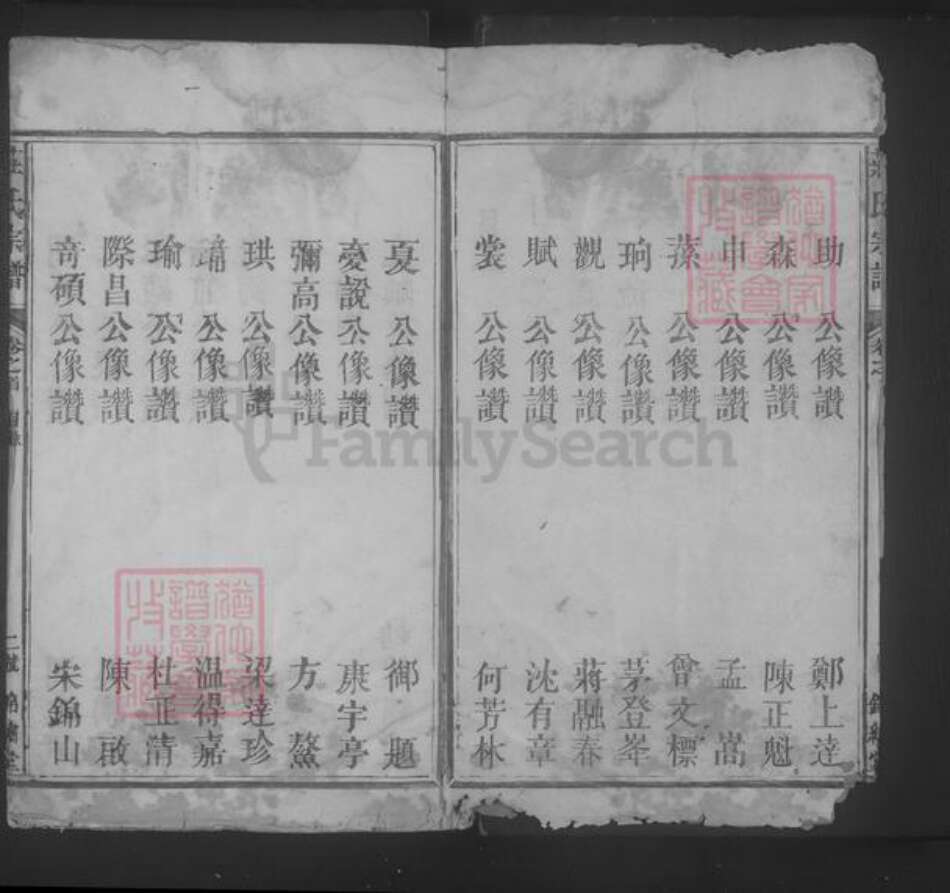 助 公像讚 鄭上達
森 公像讚 陳正魁
申 公像讚 孟嵩
蓀 公像讚 曾文標
珦 公像讚 茅登峯
觀 公像讚 蔣融春
賦 公像讚 沈有章
裳 公像讚 何芳林
夏 公像讚 御題
夔說 公像讚 庚宇亭
彌高 公像讚 方鰲
珙 公像讚 梁達珍
公像讚 温得嘉
瑜 公像讚 杜正清
際昌 公像讚 陳啟
奇碩 公像讚 宋錦山
氏宗譜 卷之首 目錄
FamilySearch